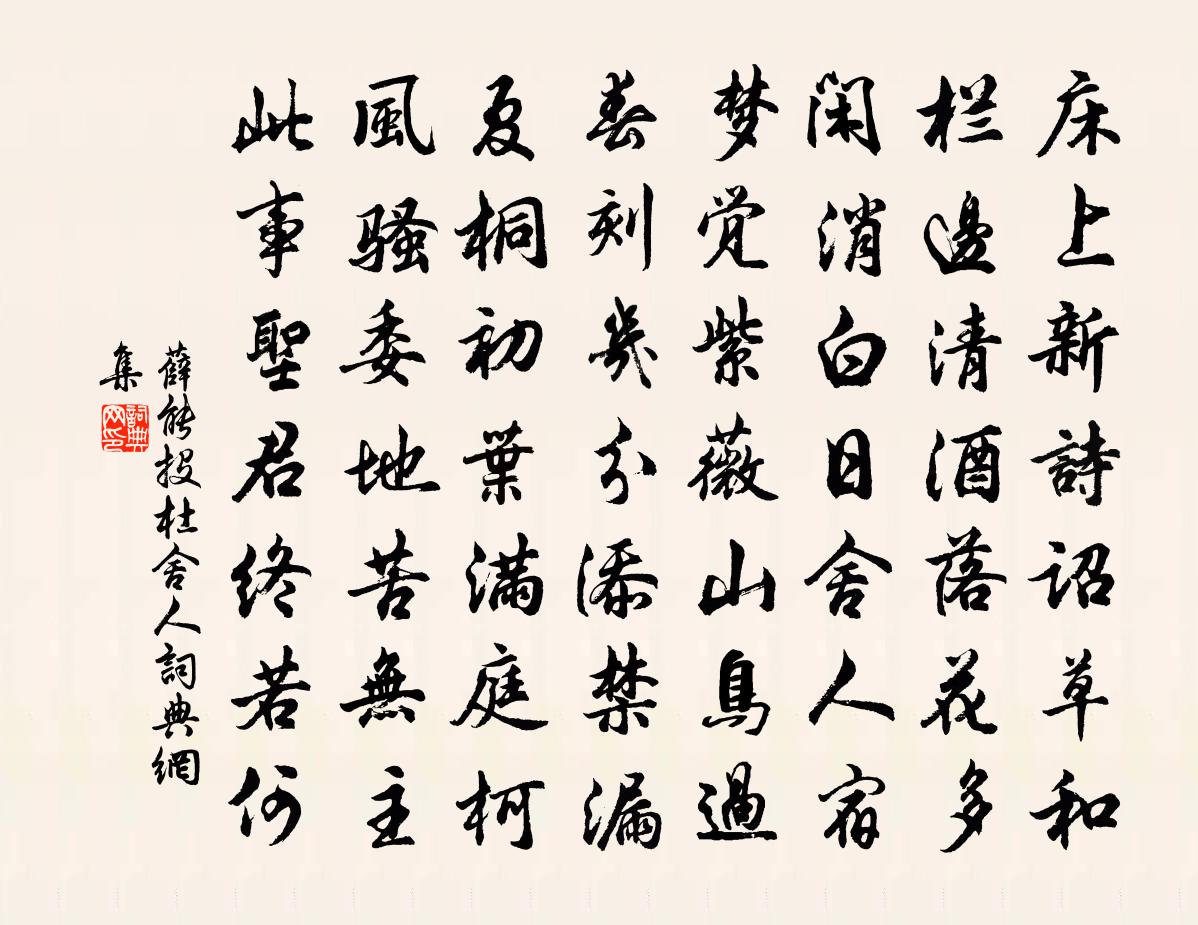 床上新詩詔草和
栏邊清酒落花多
闲消白日舍人宿
梦觉紫薇山鳥過
春刻幾分添禁漏
夏桐初葉満庭柯
風骚委地苦無主
此事聖君终若何
薛能投杜舍人詞典網
集
詞典网印